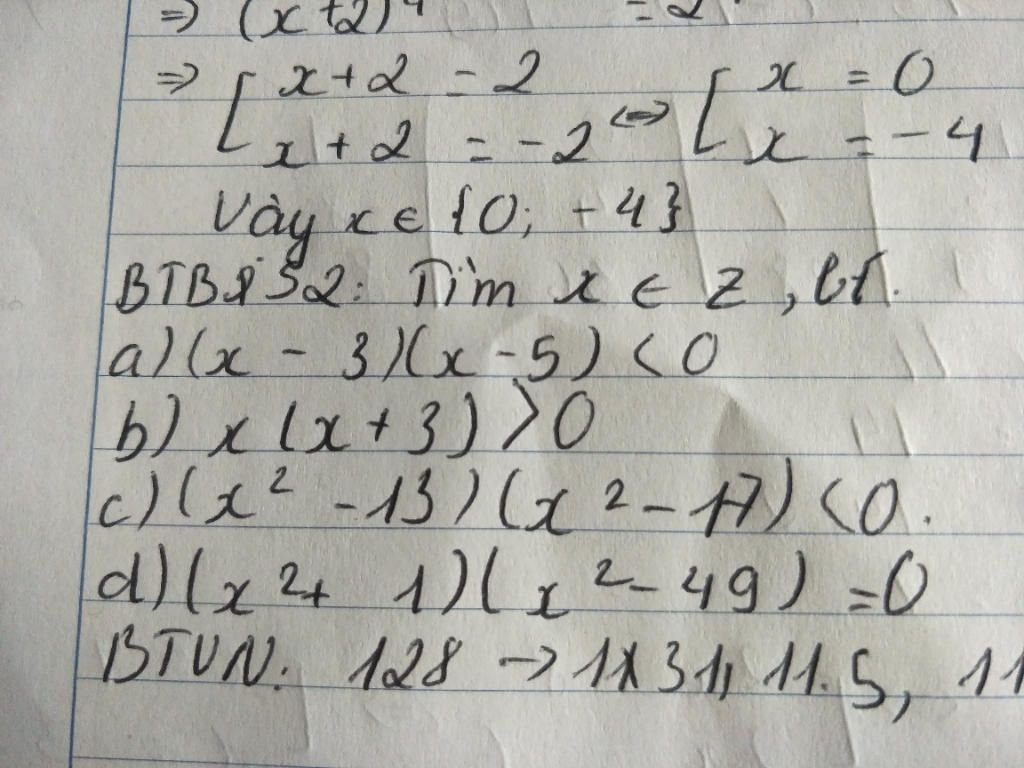 ⇒ (x+2)⁴ = 2
⇒ [ x+2 = 2 ⇔ [ x = 0
x + 2 = -2 x = -4
Vậy x ∈ {0; -4}
52: Tìm x ∈ Z, bt.
a) (x - 3)(x - 5) < 0
b) x (x + 3) > 0
c) (x² - 13) (x² - 17) < 0.
d) (x² + 1) (x² - 49) = 0
BTVN: 128 → 131, 11.5, 11